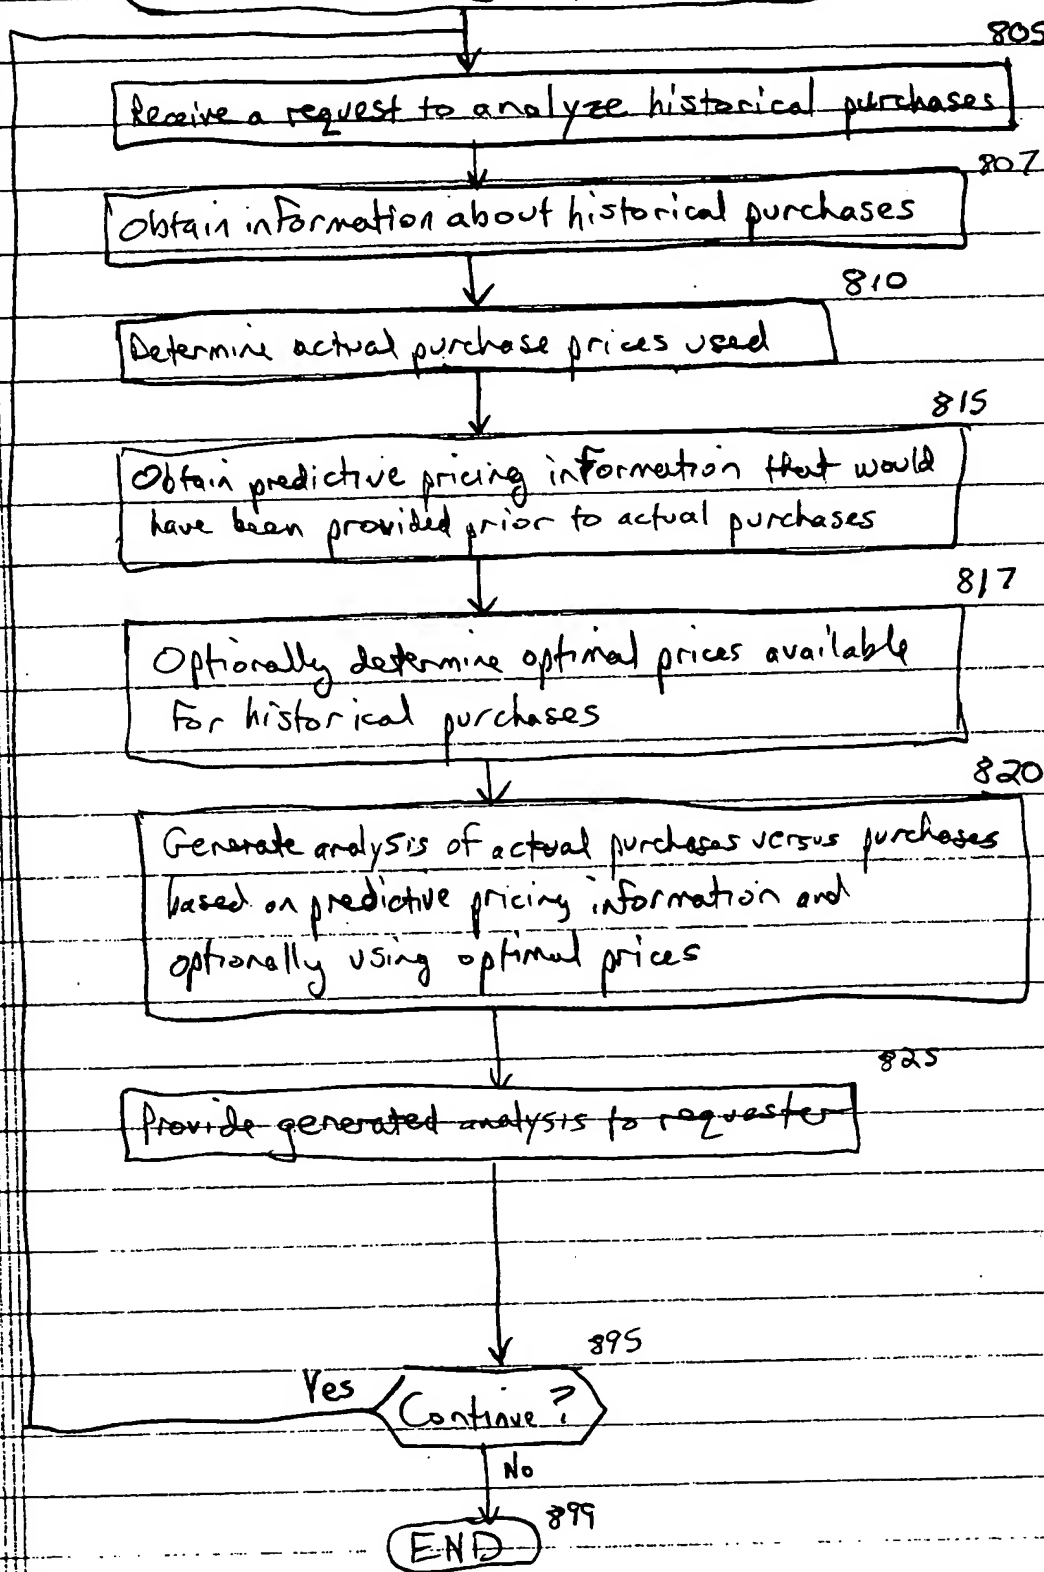 805
Receive a request to analyze historical purchases
807
Obtain information about historical purchases
810
Determine actual purchase prices used
815
Obtain predictive pricing information that would
have been provided prior to actual purchases
817
Optionally determine optimal prices available
for historical purchases
820
Generate analysis of actual purchases versus purchases
based on predictive pricing information and
optionally using optimal prices
825
Provide generated analysis to requester
895
Yes
Continue?
No
899
END